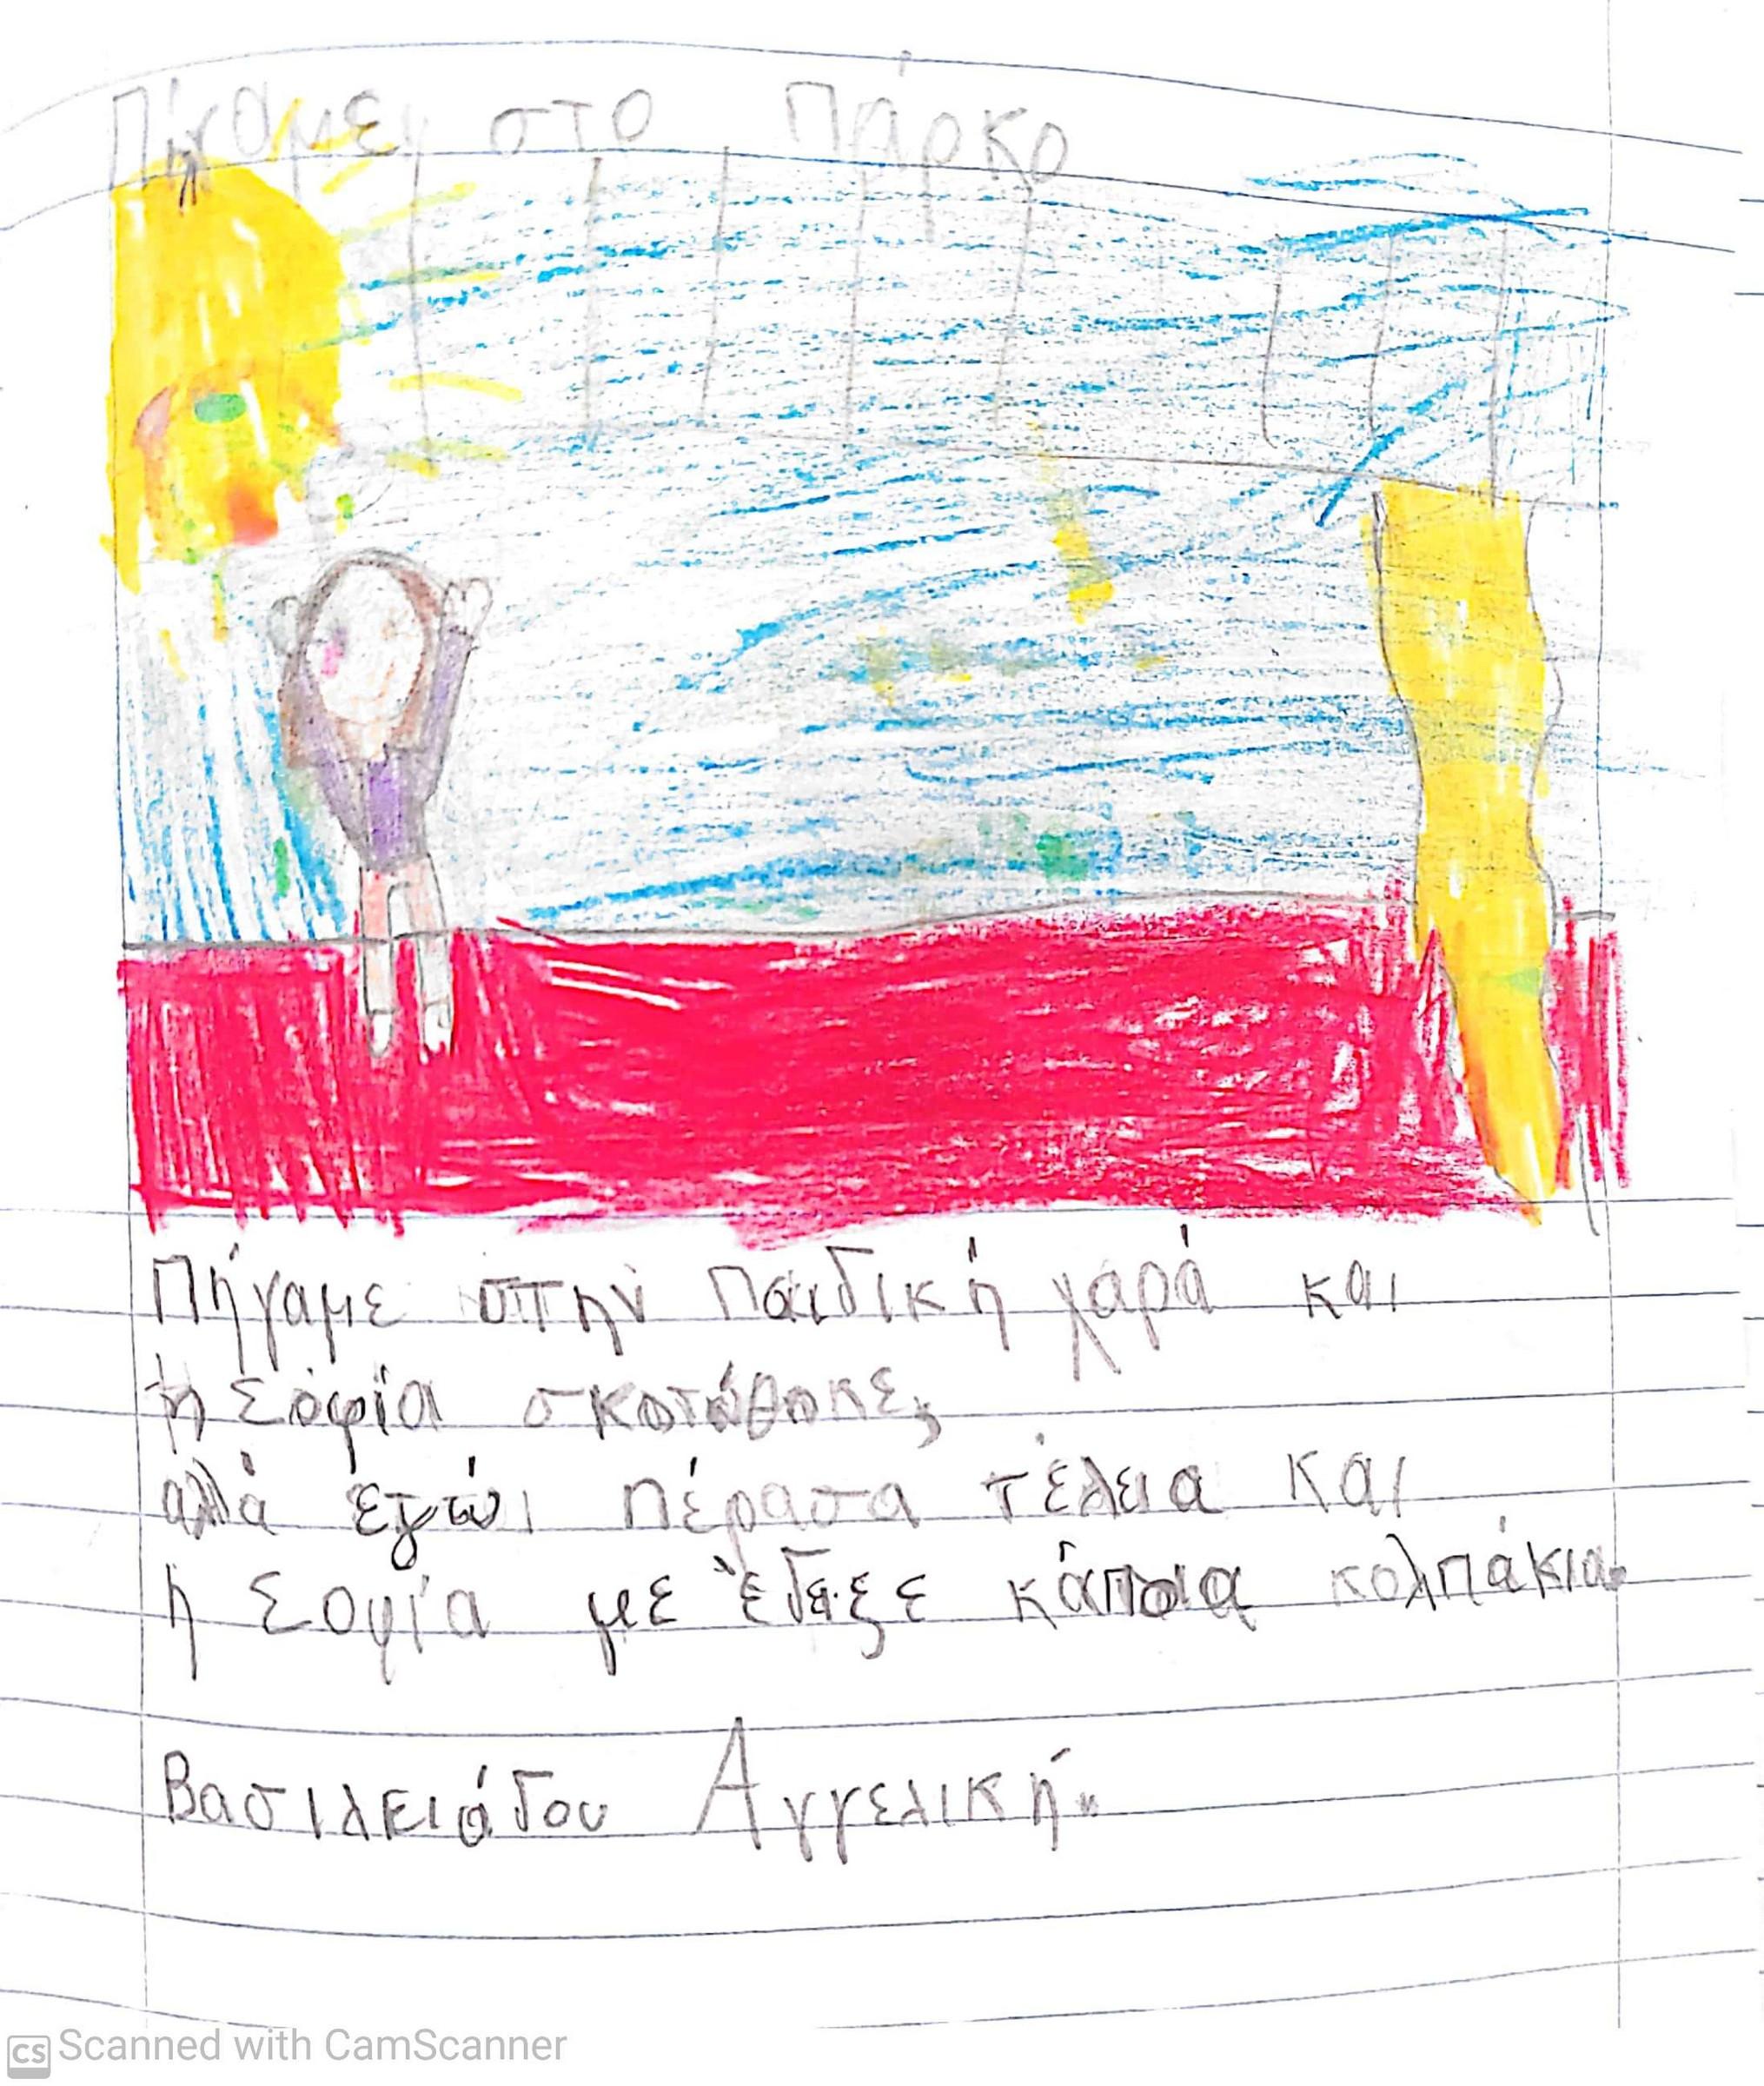 Πήγαμε στο Πάρκο
Πήγαμε στην Παιδική χαρά και
η Σοφία
αλλά εγώ πέρασα τέλεια και
η Σοφία με έδειξε κάποια κολπάκια.
Βασιλειάδου Αγγελική.
CS Scanned with CamScanner